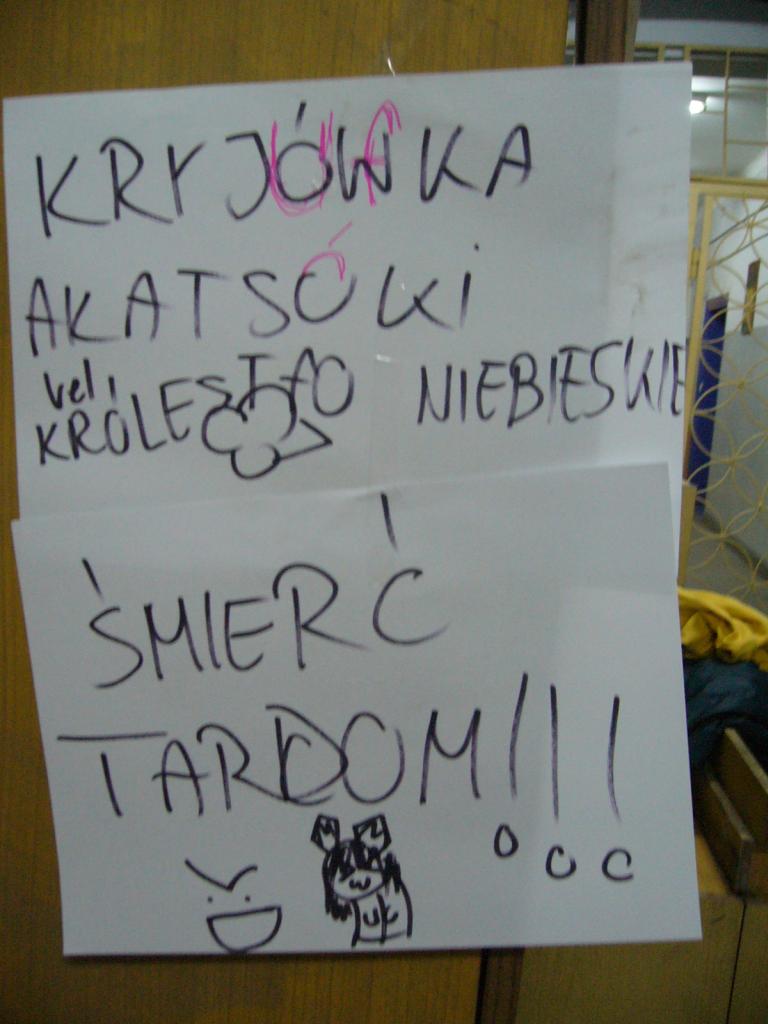 KRYJÓWKA
AKATSÓKI
vel.
KRÓLESTFO NIEBIESKIE
ŚMIERĆ
TARDOM!!!